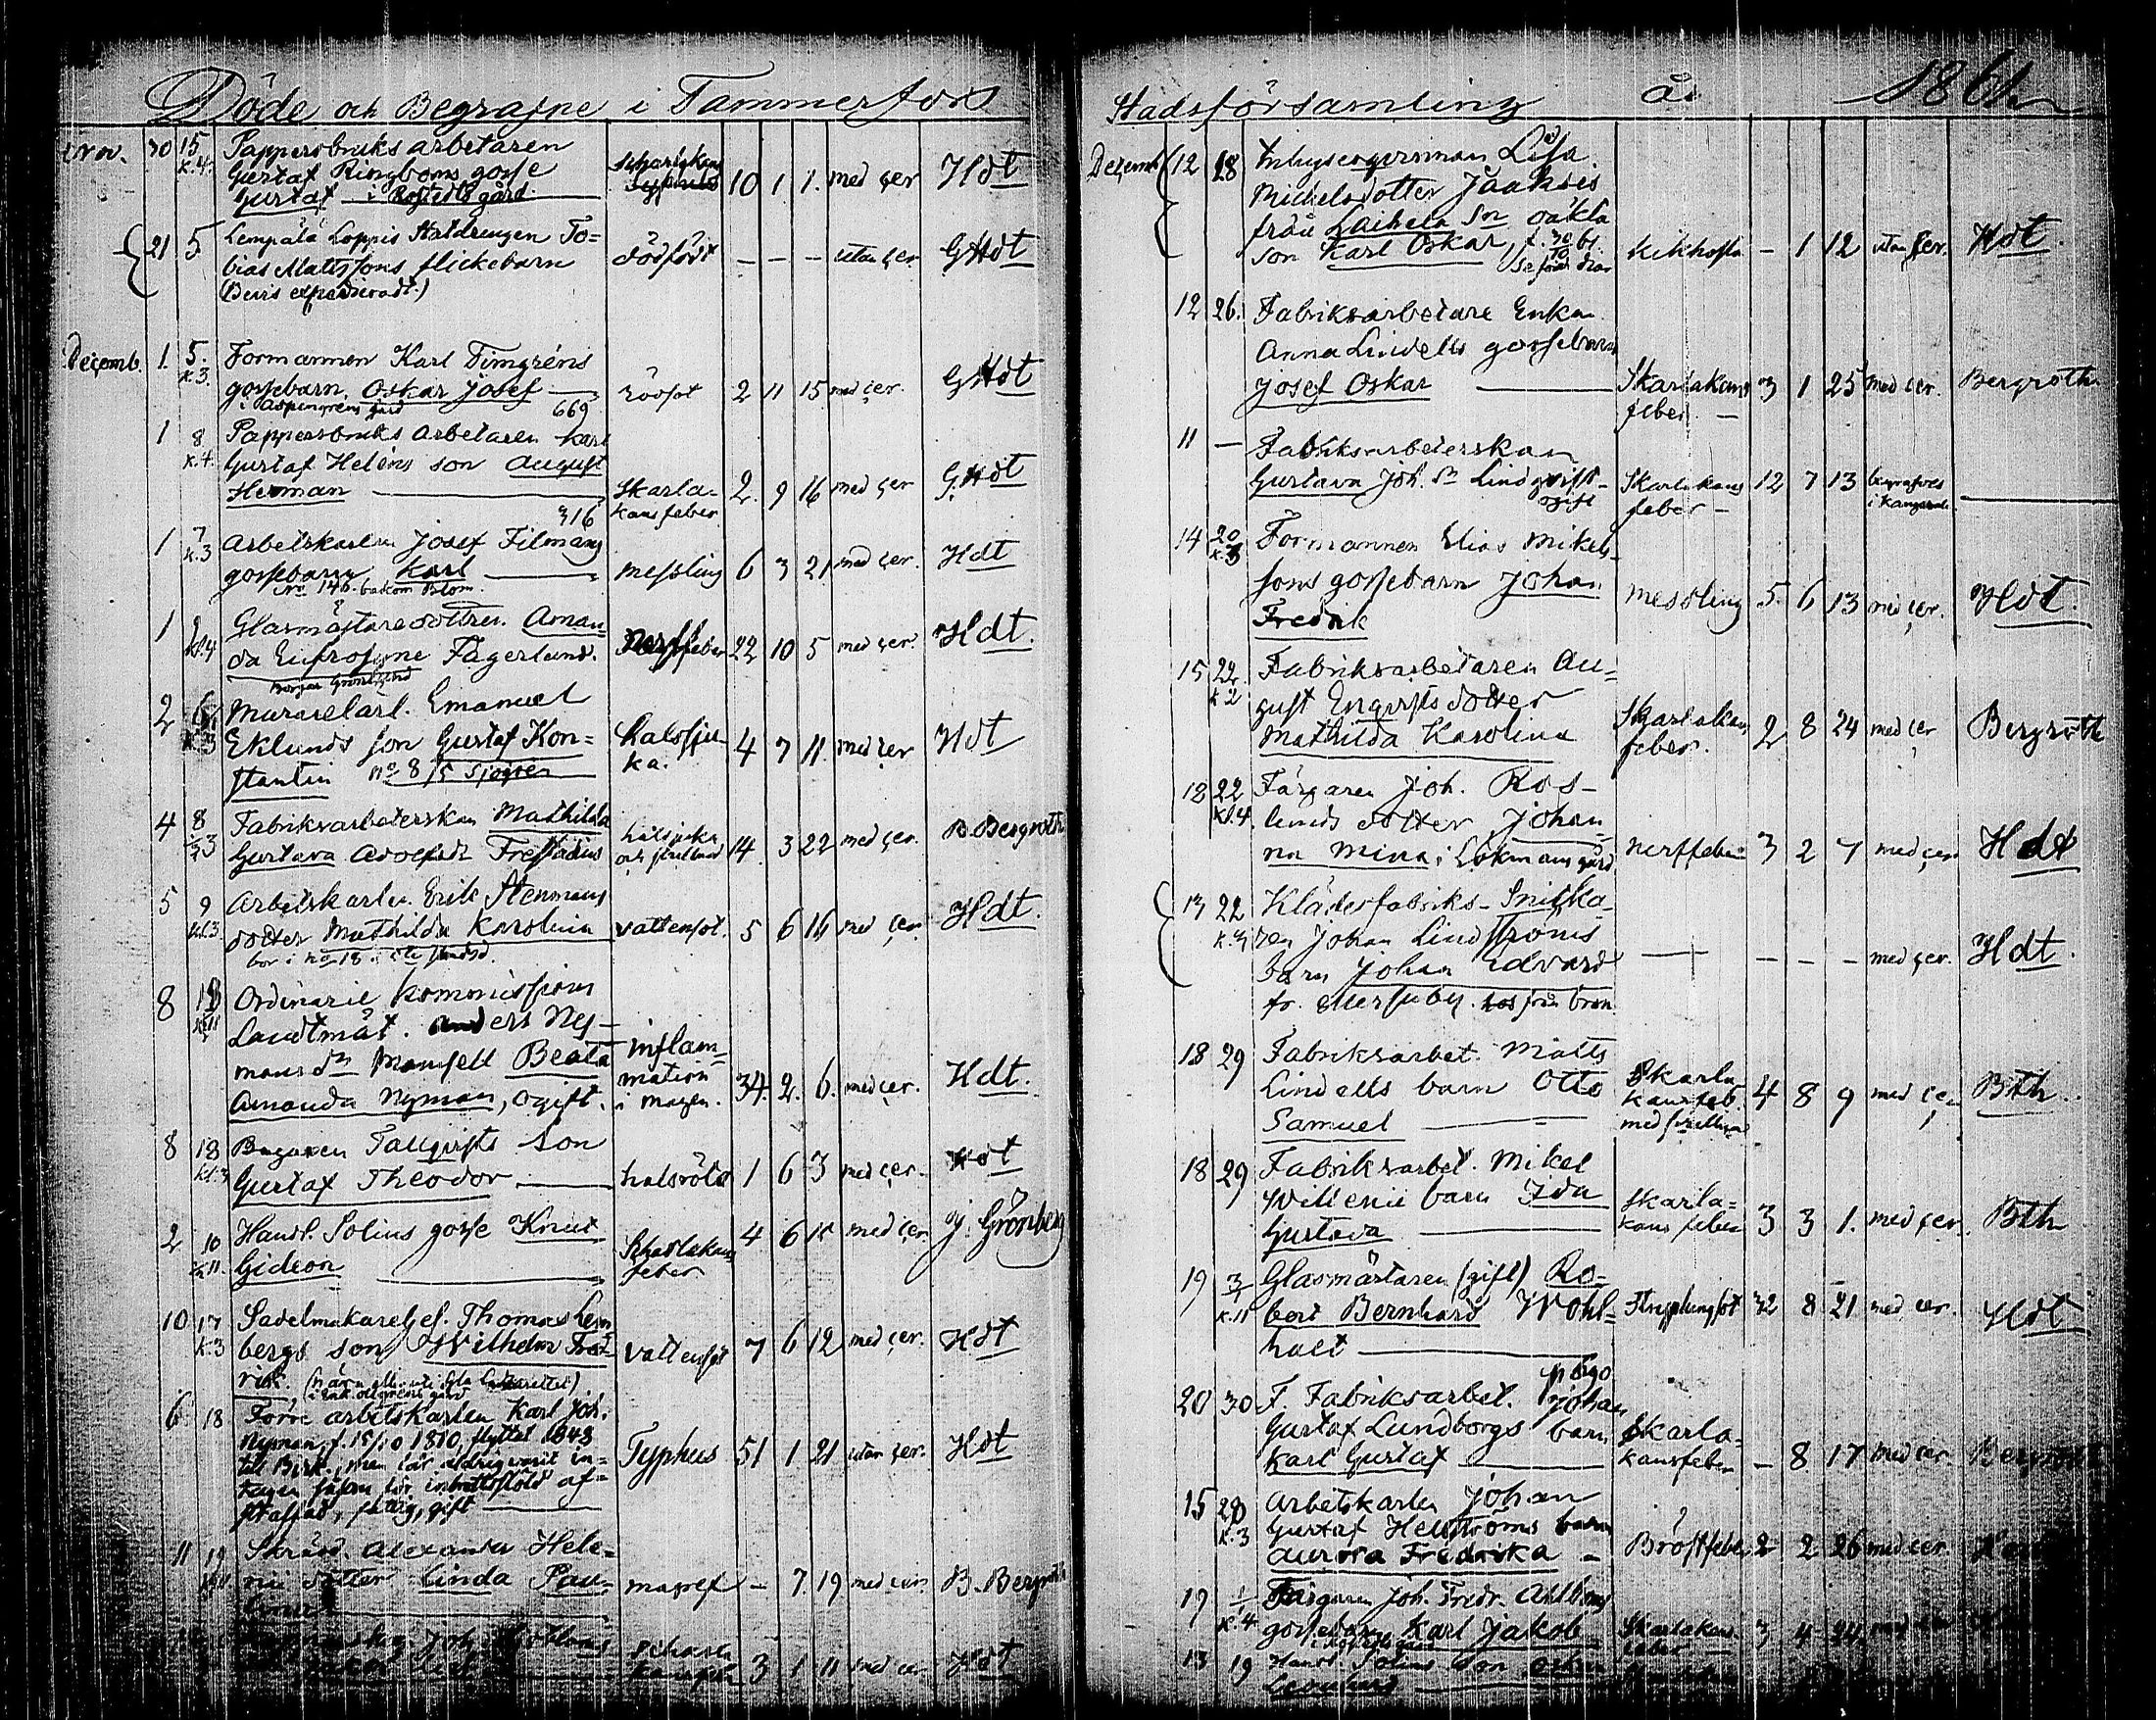 Döde och Begrafne i Tammerfors
Nov. 30 15 Pappersbruks arbetaren
k.4. Gustaf Ringboms gosse 10 1 1. med cer Hdt
Gustaf i Rostedts gård
21 5 Lempälä Loppis Statdrengen To=
bias Mattssons flickebarn dödfödt — — — utan cer GHdt
(Bevis expedieradt.)
Decemb. 1. 5. Formannen Karl Timgréns
k.3. gossebarn Oskar Josef rödsot 2 11 15 med cer. GHdt
i Aspengrens gård 669
1 8 Pappersbruks arbetaren Karl
k.4. Gustaf Heléns son August
Herman Skarla= 2. 9 16 med cer G.Hdt
316 kansfeber
1 7 Arbetskarlen Josef Filmans
k.3 gossebarn Karl messling 6 3 21 med cer. Hdt
No 146. bakom Blom.
1 Glasmästaredottren Aman=
kl.4 da Eufrosyne Fagerlund. Nerffeber 22 10 5 med cer. Hdt.
2 Murarelärl. Emanuel
k.3 Eklunds son Gustaf Kon= Halssju= 4 7 11. med cer Hdt
stantin ka.
4 8 Fabriksarbeterskan Mathilda
3 Gustava Adolfsdr halsjuka 14. 3 22 med cer. B. Bergroth
5 9 Arbetskarlen Erik Stenmans
kl.3. dotter Mathilda Karolina vattensot. 5 6 16 med cer Hdt.
bor i No 18.
8 18 Ordinarie kommissions
Landtmät. Anders Ny=
mans dr Mamsell Beata Inflam=
Amanda Nyman, ogift. mation 34. 2. 6. med cer. Hdt.
i magen.
8 18 Bagaren Tallqvists son
kl.3 Gustaf Theodor halsröta 1 6 3 med cer. Hdt
2 10 Handl. Solins gosse Knut 4 6 15 med cer. J. Grönberg
Gideon Skarlakans
feber
10 17 Sadelmakaregef. Thomas
k.3 bergs son Wilhelm Fred= vattensot 7 6 12 med cer. Hdt
rik.
6 18 Förre arbetskarlen Karl Joh.
Nyman, f. 15/10 1810, flyttat 1843 Typhus 51 1 21 utan cer. Hdt
till Birk., men lär aldrig varit in=
tagen
fattig, gift
11 19 Skrädd. Alexander Hele=
nii dotter Linda Pau= — 7. 19 med cer B. Bergroth
lina
Joh.
3 1 11 med cer Hdt
Stadsförsamling år 1861.
Decemb 12 18 Inhysesqvinnan Lisa
Michelsdotter Jaakois
från Laihela Sn oäkta
son Karl Oskar, f. 30/10 61. kikhosta — 1 12 utan cer. Hdt.
12 26. Fabriksarbetare Enkan
Anna Lindells gossebarn
Josef Oskar Skarlakans 3 1 25 med cer. Bergroth
feber
11 — Fabriksarbeterskan
Gustava Joh. Dr Lindqvist Skarlakans 12 7 13 begrafves
ogift feber — i Kangasala
14 20 Formannen Elias Mikels=
k.3 sons gossebarn Johan messling 5. 6 13 med cer. Hdt.
Fredrik
15 22 Fabriksarbetaren Au=
k 2 gust Enqvists dotter
Mathilda Karolina Skarlakans 2 8 24 med cer Bergroth
feber.
18 22 Färgaren Joh. Ros=
kl.4. lunds dotter Johan=
na Mina i Lökmans gård nerffeber 3 2 7 med cer Hdt
13 22 Klädesfabriks-Snicka=
k. ren Johan Lindströms
barn Johan Edvard — — — — med cer. Hdt.
fr. Messuby.
18 29 Fabriksarbet. Matts
Lindells barn Otto Skarla= 4 8 9 med cer Bth.
Samuel kansfeb.
18 29 Fabriksarbet. Mikel
Willenii barn Ida Skarla= 3 3 1. med cer. Bth
Gustava kansfeber
19 3/1 Glasmästaren (gift) Ro=
k.11 bert Bernhard Wohl= 32 8 21 med cer. Hdt
20 30 F. Fabriksarbet. Johan
Gustaf Lundborgs barn Skarla=
Karl Gustaf kansfeber — 8 17 med cer. Bergroth
15 28 Arbetskarlen Johan
k.3 Gustaf Hellströms barn
Aurora Fredrika Bröstfeber 2 2 26 med cer.
19 1/1 Färgaren Joh. Fredr. Ahlboms
k.4 gossebarn Karl Jakob Skarlakans= 3 4 24
feber
13 19 Handl. Solins son Oskar
Leonhard